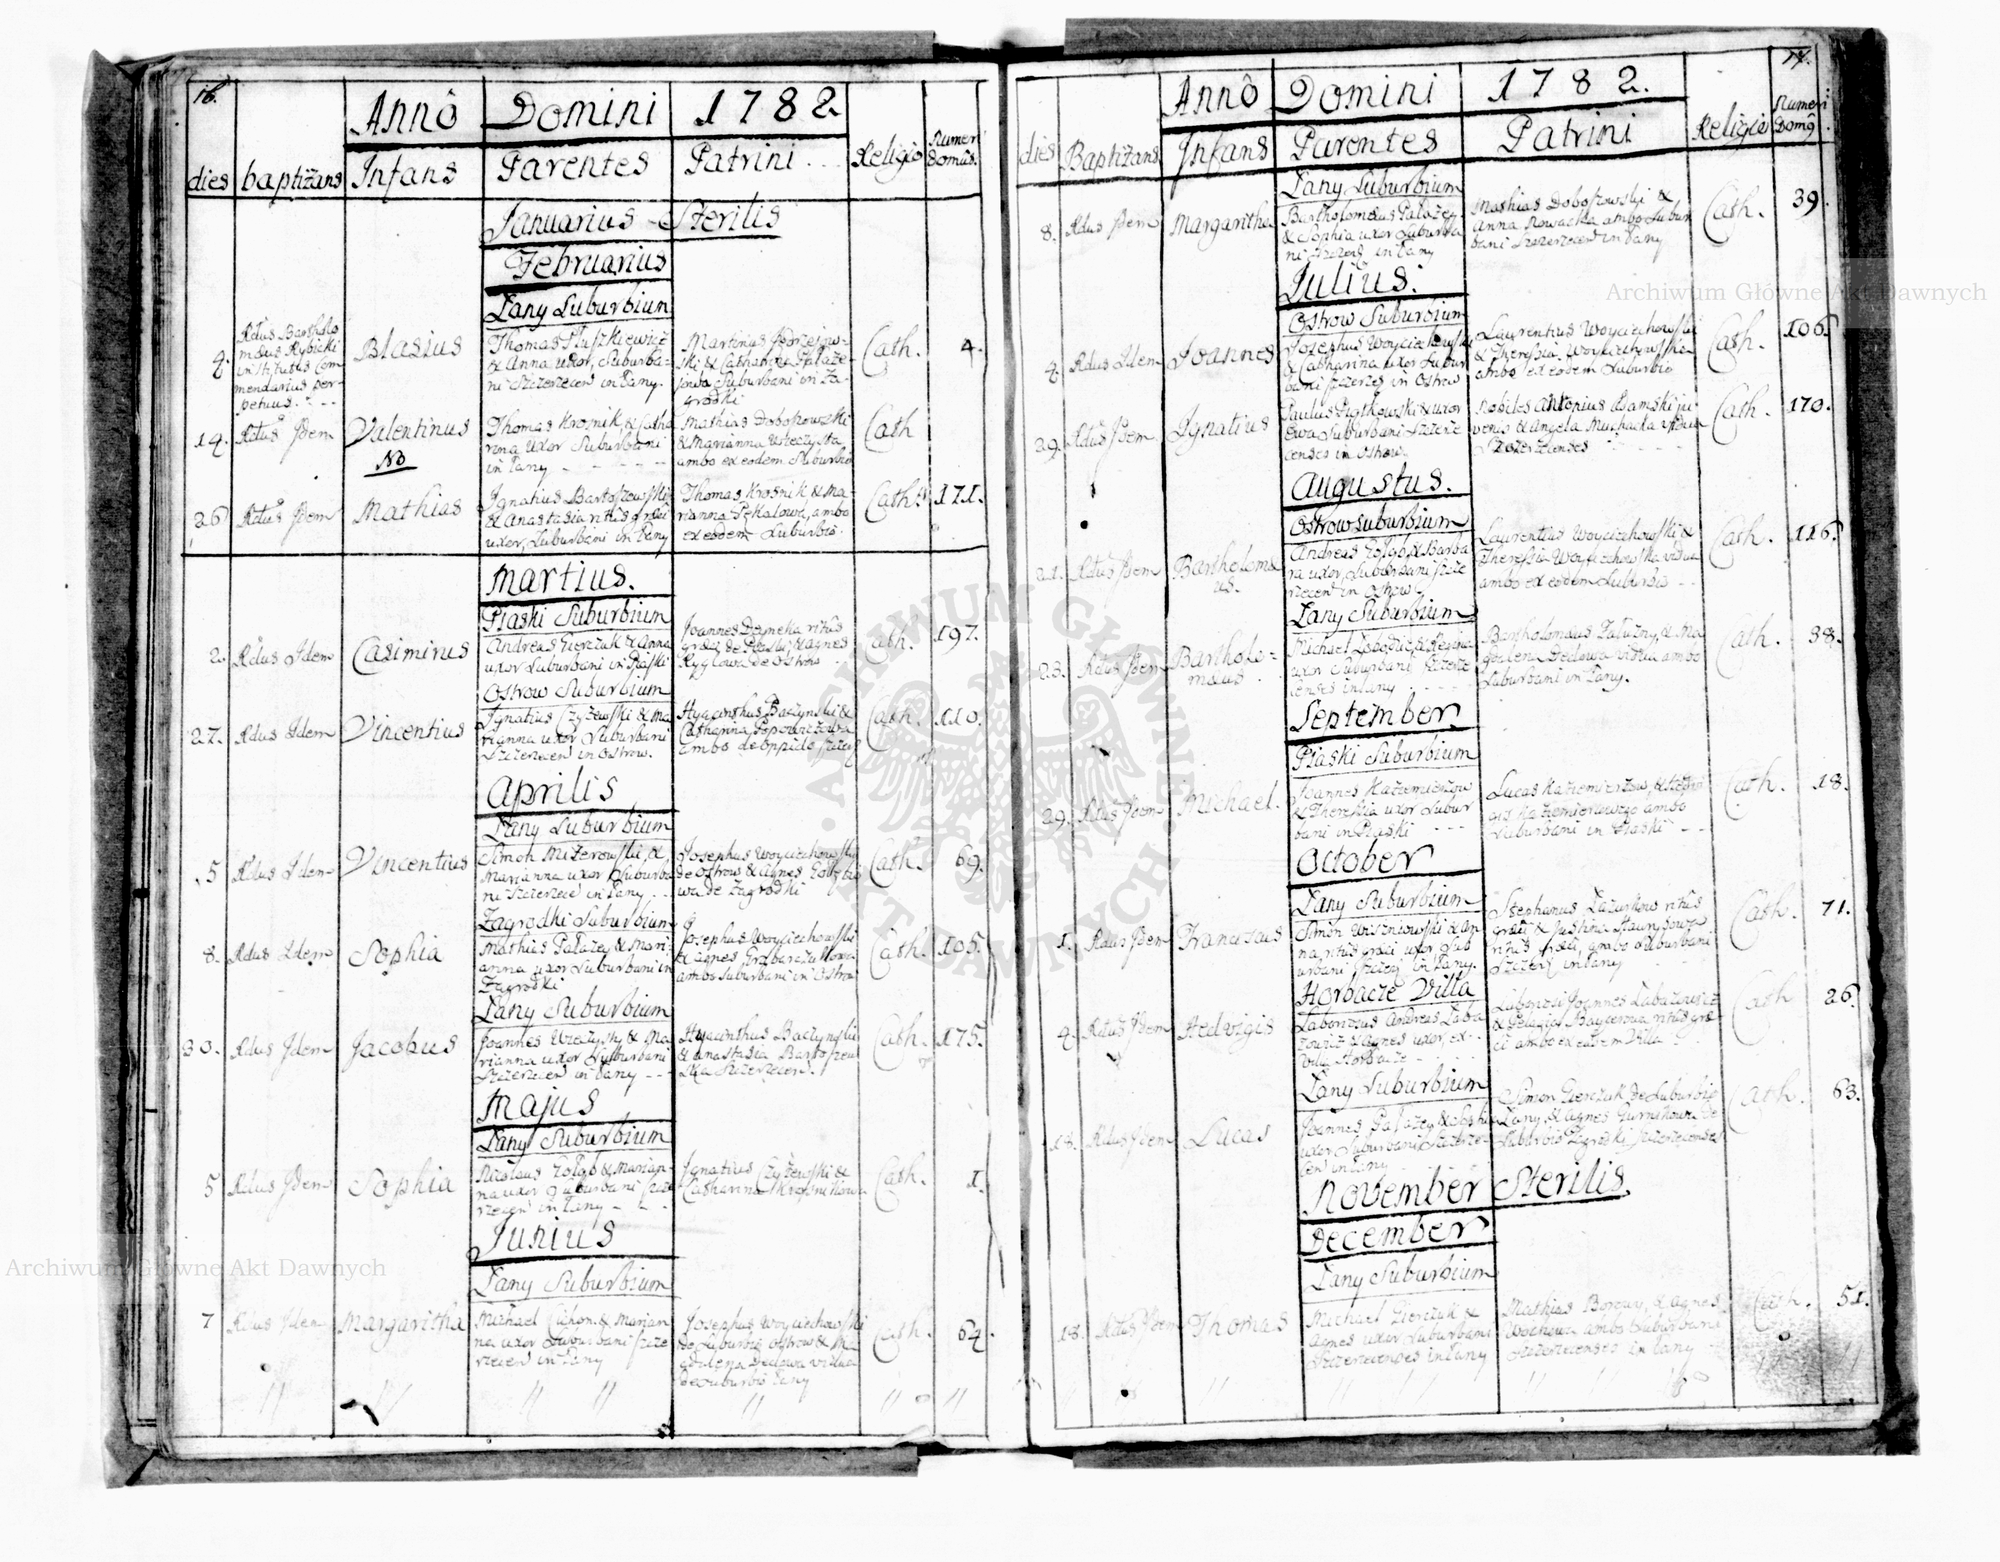 16.
Annô Domini 1782
dies baptizans Infans Parentes Patrini Religio Numeri Domûs.
Januarius Sterilis
Februarius
Łany Suburbium
4. Rdus Bartholo
mæus Rybicki
institutus Com
mendarius per-
petuus.
Blasius
Thomas
& Anna uxor, Suburba-
ni Szczerzecen in Łany.
Martinus
ski & Catharina
Suburbani in Za-
grodki
Cath. 4.
14. Rdus Idem Valentinus
NB
Thomas Krosnik, & Catha
rina Uxor Suburbani
in Łany
Mathias Doboszowski
& Marianna
ambo ex eodem Suburbio
Cath
26 Rdus Idem Mathias
Ignatius Bartoszewski
& Anastasia ritûs græci
uxor, Suburbani in Łany
Thomas Krosnik & Ma-
rianna Pękalowa, ambo
ex eodem Suburbio.
Cath. 171.
Martius.
Piaski Suburbium
2. Rdus Idem Casimirus
Andreas Gierczuk & Anna
uxor Suburbani in Piaski
Joannes Deyneka ritûs
græci de Piaski & Agnes
Ryglowa de Ostrow
Cath. 197.
Ostrow Suburbium
27. Rdus Idem Vincentius
Ignatius Czyżewski & Ma
rianna uxor Suburbani
Szczerzecen in Ostrow.
Hyacinthus Baczynski &
Catharina Popowiczowa
ambo de oppido
Cath. 110.
Aprilis
Łany Suburbium
5 Rdus Idem Vincentius
Simon Mizerowski, &
Marianna uxor Suburba
ni Szczerzece in Łany
Josephus Woyciechowski
de Ostrow & Agnes Gołębio
wa de Zagrodki
Cath. 69.
Zagrodki Suburbium
8. Rdus Idem Sophia
Mathias Pałazey & Mari-
anna uxor Suburbani in
Zagrodki
Josephus Woyciechowski
& Agnes
ambo Suburbani in Ostrow
Cath. 105.
Łany Suburbium
30. Rdus Idem Jacobus
Joannes & Ma
rianna uxor Suburbani
Szczerzecen in Łany
Hyacinthus Baczynski
& Anastasia Bartoszew
ska Szczerzecen.
Cath. 175.
Majus
Łany Suburbium
5 Rdus Idem Sophia
Nicolaus Gołąb & Marian-
na uxor Suburbani Szcze
rzecen in Łany
Ignatius Czyżewski &
Catharina Krosnikowa
Cath. 1.
Junius
Łany Suburbium
7 Rdus Idem Margaritha
Michael Cichon & Marian
na uxor Suburbani Szcze
rzecen in Łany
Josephus Woyciechowski
de Suburbio Ostrow & Ma
gdalena Dedowa vidua
de Suburbio Łany
Cath. 64.
17.
Annô Domini 1782.
dies Baptizans Infans Parentes Patrini Religio Numeri Domûs
Łany Suburbium
8. Rdus Idem Margaritha
Bartholomæus Pałazey
& Sophia uxor Suburba
ni Szczerz in Łany
Mathias Doboszowski &
Anna Nowacka ambo Subur
bani Szczerzecen in Łany
Cath. 39.
Julius.
Ostrow Suburbium
4. Rdus Idem Joannes
Josephus Woyciechowski
& Catharina uxor Subur
bani Szczerzec in Ostrow
Laurentius Woyciechowski
& Theressia Woyciechowska
ambo ex eodem Suburbio
Cath. 106.
29. Rdus Idem Ignatius
Paulus Piątkowski & uxor
Ewa Suburbani Szczerze
censes in Ostrow.
Nobiles Antonius Adamski ju
venis & Angela Muchacka vidua
Szczerzecenses
Cath. 170.
Augustus.
Ostrow Suburbium
21. Rdus Idem Bartholomæ
us.
Andreas Gołąb & Barba
ra uxor Suburbani Szcze
rzecen in Ostrow
Laurentius Woyciechowski &
Theressia Woyciechowska vidua
ambo ex eodem Suburbio
Cath. 116.
Łany Suburbium
23. Rdus Idem Bartholo=
mæus
Michael & Regina
uxor Suburbani Szczerze
censes in Łany
Bartholomæus Pałuzny, & Ma
gdalena Dedowa vidua ambo
Suburbani in Łany.
Cath. 38.
September
Piaski Suburbium
29. Rdus Idem Michael.
Joannes Kazimierzow
& Theressia uxor Subur
bani in Piaski
Lucas Kazimierzow, &
Kazimierzowa ambo
Suburbani in Piaski
Cath. 18.
October
Łany Suburbium
1. Rdus Idem Franciscus
Simon Wiszniowski & An
na ritûs græci uxor Sub
urbani Szczerz in Łany.
Stephanus Łazurkow ritûs
græci & Justina
ritûs græci, ambo Suburbani
Szczerz in Łany
Cath. 71.
Horbacze Villa
4. Rdus Idem Hedvigis
Laboriosus Andreas Łaba
zowicz & Agnes uxor, ex
Villa Horbacze
Laboriosi Joannes Łabazowicz
& Pelagia ritûs græ
ci ambo ex eadem Villa
Cath 26.
Łany Suburbium
18. Rdus Idem Lucas
Joannes Pałazey & Sophia
uxor Suburbani Szczerze-
cen in Łany
Simon Gierczuk de Suburbio
Łany, & Agnes de
Suburbio Zagrodki Szczerzecenses
Cath. 63.
November Sterilis.
December
Łany Suburbium
18. Rdus Idem Thomas
Michael Gierczuk &
Agnes uxor Suburbani
Szczerzecenses in Łany
Mathias & Agnes
ambo Suburbani
Szczerzecenses in Łany
Cath. 51.
Archiwum Główne Akt Dawnych
Archiwum Główne Akt Dawnych
ARCHIWUM GŁÓWNE AKT DAWNYCH